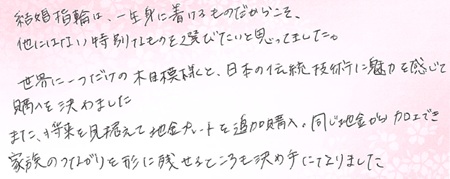 結婚指輪は、一生身に着けるものだからこそ、
他にはない特別なものを選びたいと思ってました。
世界に一つだけの木目模様と、日本の伝統技術に魅力を感じて
購入を決めました
また、将来を見据えて地金プレートを追加購入。同じ地金から加工でき
家族のつながりを形に残せるところも決め手になりました